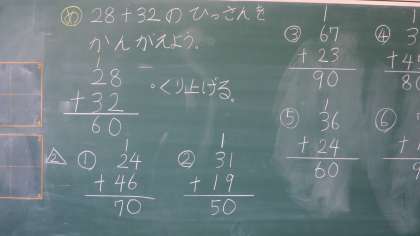 め 28+32のひっさんを
かんがえよう。
1
28
+32
60
・くり上げる。
△2
① 1
24
+46
70
② 1
31
+19
50
③ 1
67
+23
90
④ 3
+4
80
⑤ 1
36
+24
60
⑥
+